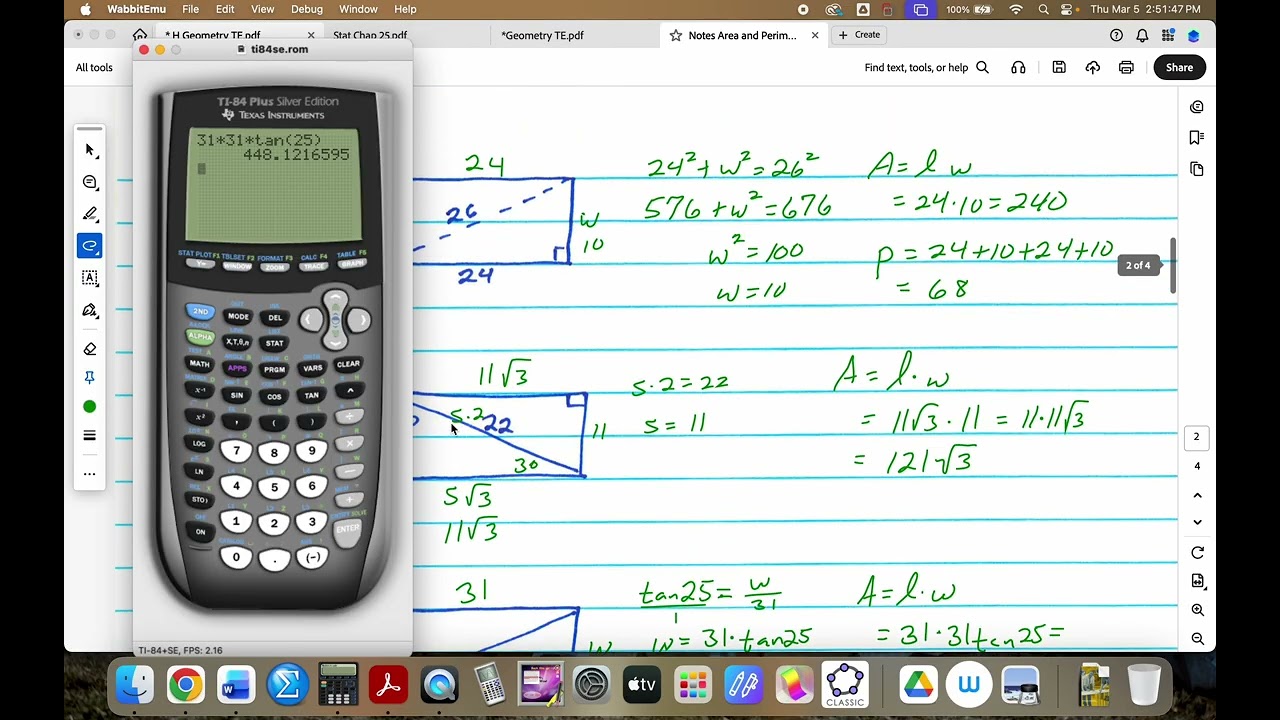 WabbitEmu File Edit View Debug Window Help 100% Thu Mar 5 2:51:47 PM
* H Geometry TE.pdf Stat Chap 25.pdf *Geometry TE.pdf Notes Area and Perim... Create
ti84se.rom
All tools Find text, tools, or help Share
TI-84 Plus Silver Edition
TEXAS INSTRUMENTS
31*31*tan(25)
448.1216595
STAT PLOT F1 TBLSET F2 FORMAT F3 CALC F4 TABLE F5
Y= WINDOW ZOOM TRACE GRAPH
2ND MODE DEL
ALPHA X,T,θ,n STAT
MATH APPS PRGM VARS CLEAR
x⁻¹ SIN COS TAN ^
x² , ( ) ÷
LOG 7 8 9 ×
LN 4 5 6 −
STO 1 2 3 +
ON 0 . (-) ENTER
TI-84+SE, FPS: 2.16
24
26
w
10
24
24² + w² = 26²
576 + w² = 676
w² = 100
w = 10
A = l w
= 24·10 = 240
P = 24+10+24+10
= 68
2 of 4
11√3
s·2 22
11
30
s√3
11√3
s·2 = 22
s = 11
A = l·w
= 11√3 · 11 = 11·11√3
= 121√3
31
w
tan25 = w/31
1
w = 31·tan25
A = l·w
= 31·31tan25 =
2
4
CLASSIC
tv